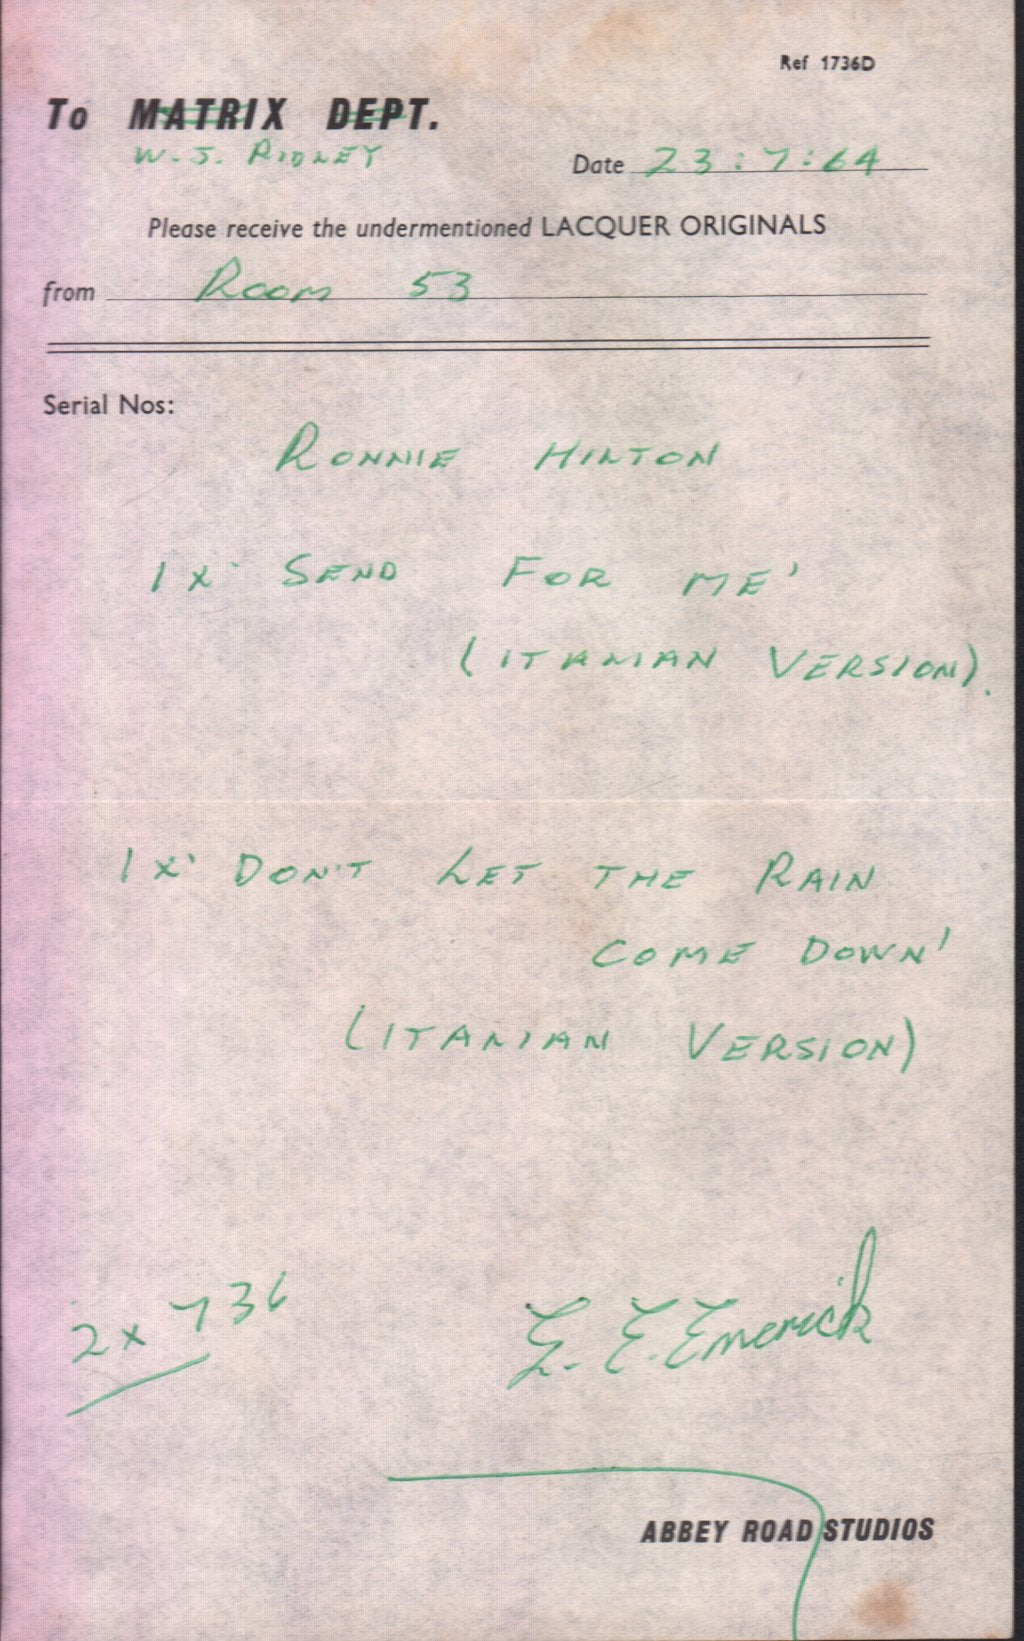 Ref 1736D
To MATRIX DEPT.
W. J. RIDLEY
Date 23:7:64
Please receive the undermentioned LACQUER ORIGINALS
from Room 53
Serial Nos:
RONNIE HILTON
1 x 'SEND FOR ME'
(ITALIAN VERSION).
1 x 'DON'T LET THE RAIN
COME DOWN'
(ITALIAN VERSION)
2 x 736
G. E. Emerick
ABBEY ROAD STUDIOS